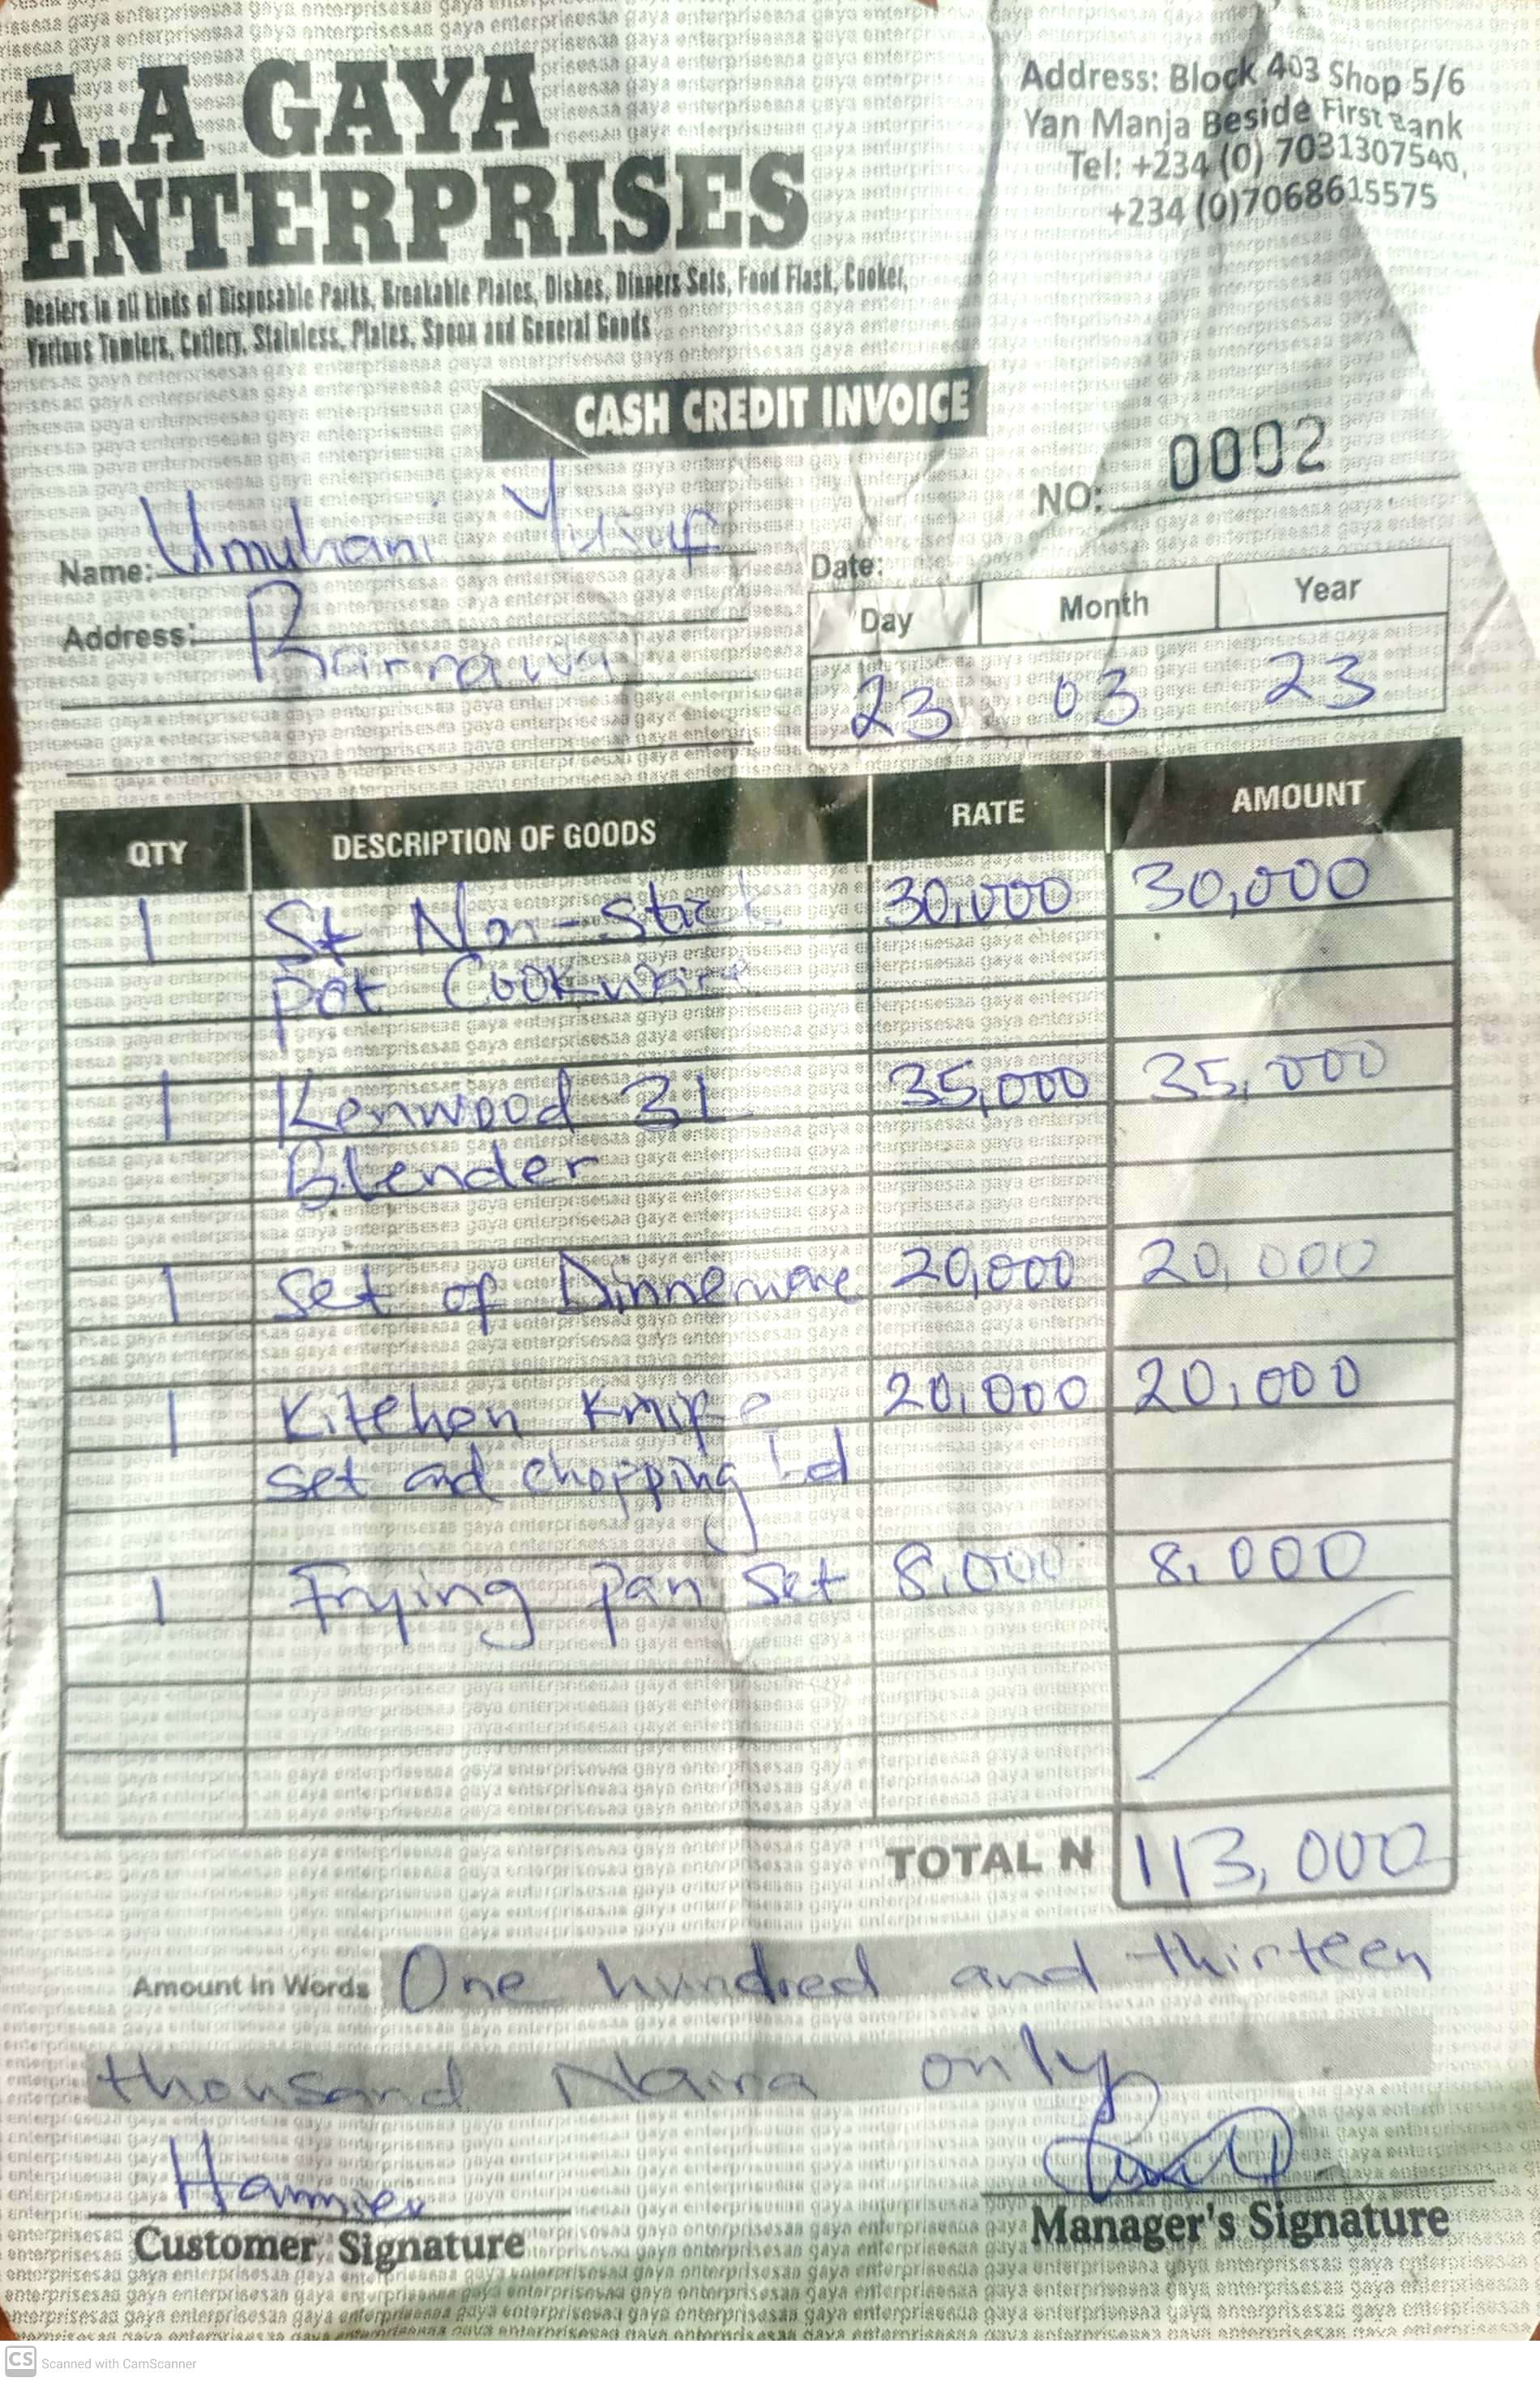 A.A GAYA
ENTERPRISES
Dealers in all kinds of Disposable Parks, Breakable Plates, Dishes, Dinners Sets, Food Flask, Cooker,
Various Tumlers, Cutlery, Stainless, Plates, Spoon and General Goods
Address: Block 403 Shop 5/6
Yan Manja Beside First Bank
Tel: +234 (0) 7031307540,
+234 (0)7068615575
CASH CREDIT INVOICE
NO: 0002
Name: Umuhani Yusuf
Address:
Date:
Day Month Year
23 03 23
QTY DESCRIPTION OF GOODS RATE AMOUNT
1 St Non-stick 30,000 30,000
pot Cookware
1 Kenwood 3L 35,000 35,000
Blender
1 Set of Dinnerware 20,000 20,000
1 Kitchen Knife 20,000 20,000
set and chopping bd
1 Frying pan set 8,000 8,000
TOTAL N 113,000
Amount in Words One hundred and thirteen
thousand Naira only
Customer Signature
Manager's Signature
CS Scanned with CamScanner